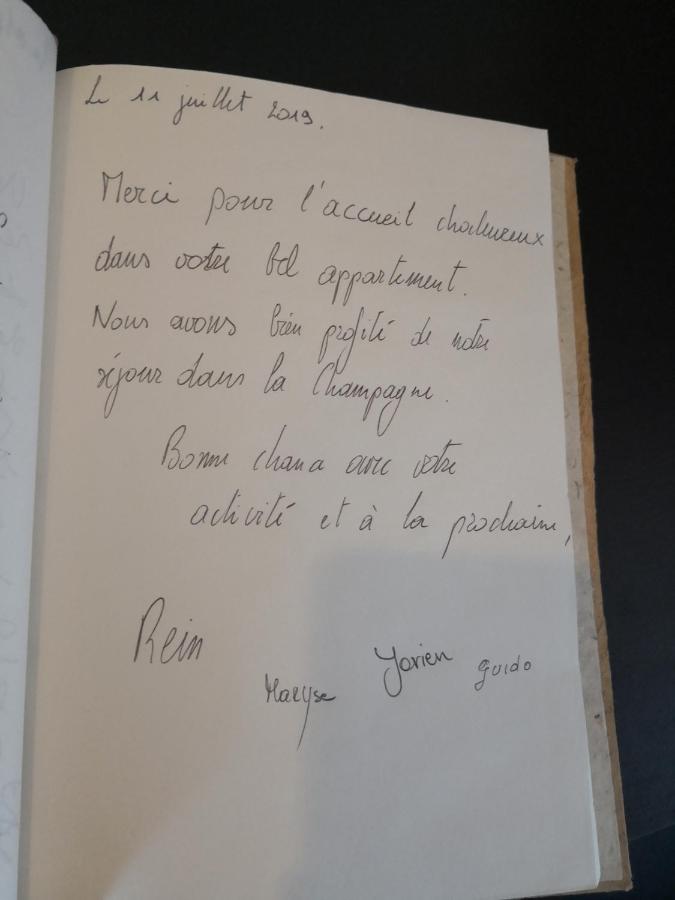 Le 11 juillet 2019.
Merci pour l'accueil chaleureux
dans votre bel appartement.
Nous avons bien profité de notre
séjour dans la Champagne.
Bonne chance avec votre
activité et à la prochaine,
Rein
Maryse Jorien Guido